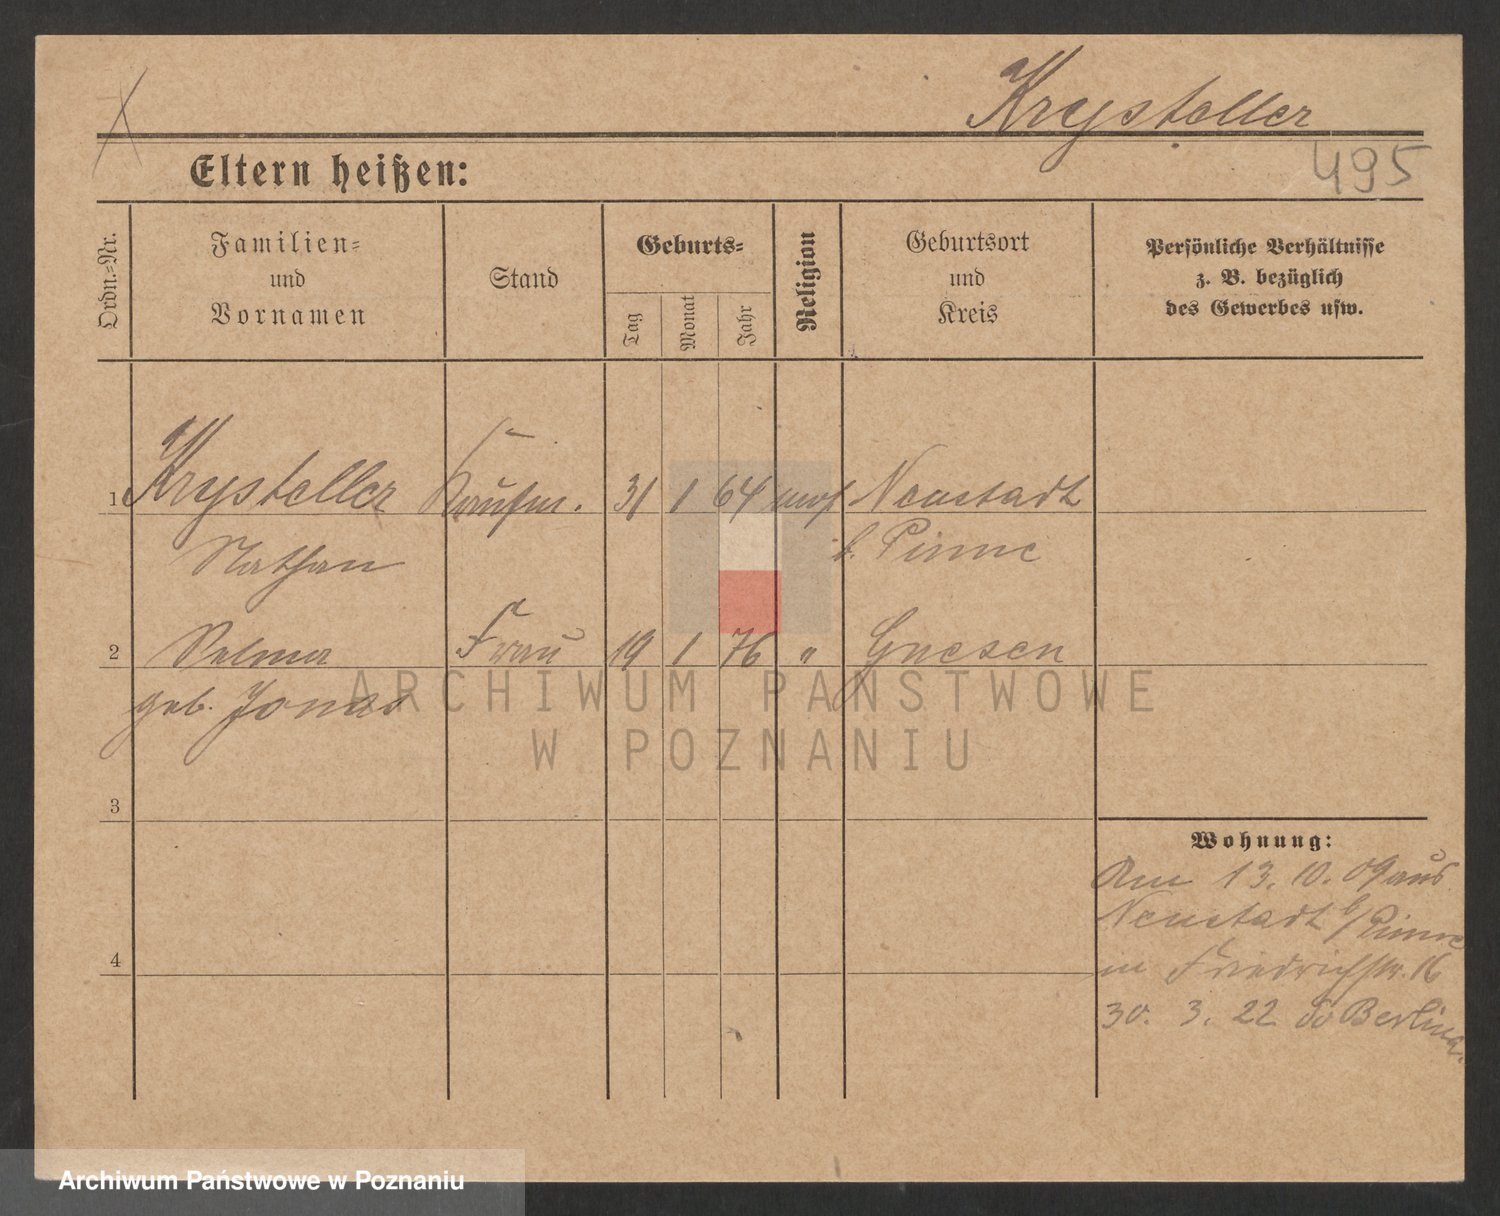 Krysteller
495
Eltern heißen:
Ordn.-Nr.
Familien-
und
Vornamen
Stand
Geburts-
Tag
Monat
Jahr
Religion
Geburtsort
und
Kreis
Persönliche Verhältnisse
z. B. bezüglich
des Gewerbes usw.
1 Krysteller Kaufm. 31 1 64 mos Neustadt
Nathan b. Pinne
2 Selma Frau 19 1 76 " Gnesen
geb. Jonas
ARCHIWUM PAŃSTWOWE
W POZNANIU
3
Wohnung:
Am 13. 10. 09 aus
Neustadt b/Pinne
4
in Friedrichstr. 16
30. 3. 22 Berlin
Archiwum Państwowe w Poznaniu